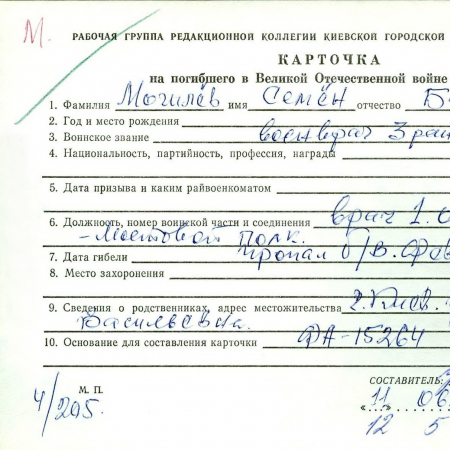 М.
РАБОЧАЯ ГРУППА РЕДАКЦИОННОЙ КОЛЛЕГИИ КИЕВСКОЙ ГОРОДСКОЙ
КАРТОЧКА
на погибшего в Великой Отечественной войне
1. Фамилия Могилёв имя Семён отчество
2. Год и место рождения
3. Воинское звание военврач 3 ран
4. Национальность, партийность, профессия, награды
5. Дата призыва и каким райвоенкоматом
6. Должность, номер воинской части и соединения врач 1.
полк.
7. Дата гибели пропал б/в.
8. Место захоронения
9. Сведения о родственниках, адрес местожительства г. Киев.
Васильевна.
10. Основание для составления карточки ФА-15264
СОСТАВИТЕЛЬ:
М. П.
4/205.
"11" 06
12 5